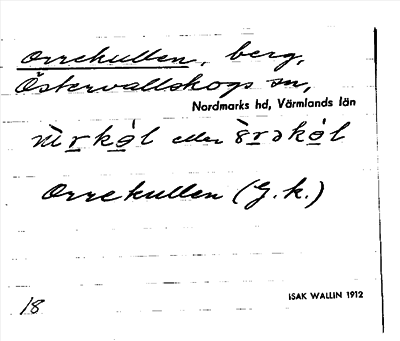 Orrekullen, berg,
Östervallskogs sn,
Nordmarks hd, Värmlands län
eller
Orrekullen (G. k.)
18 ISAK WALLIN 1912